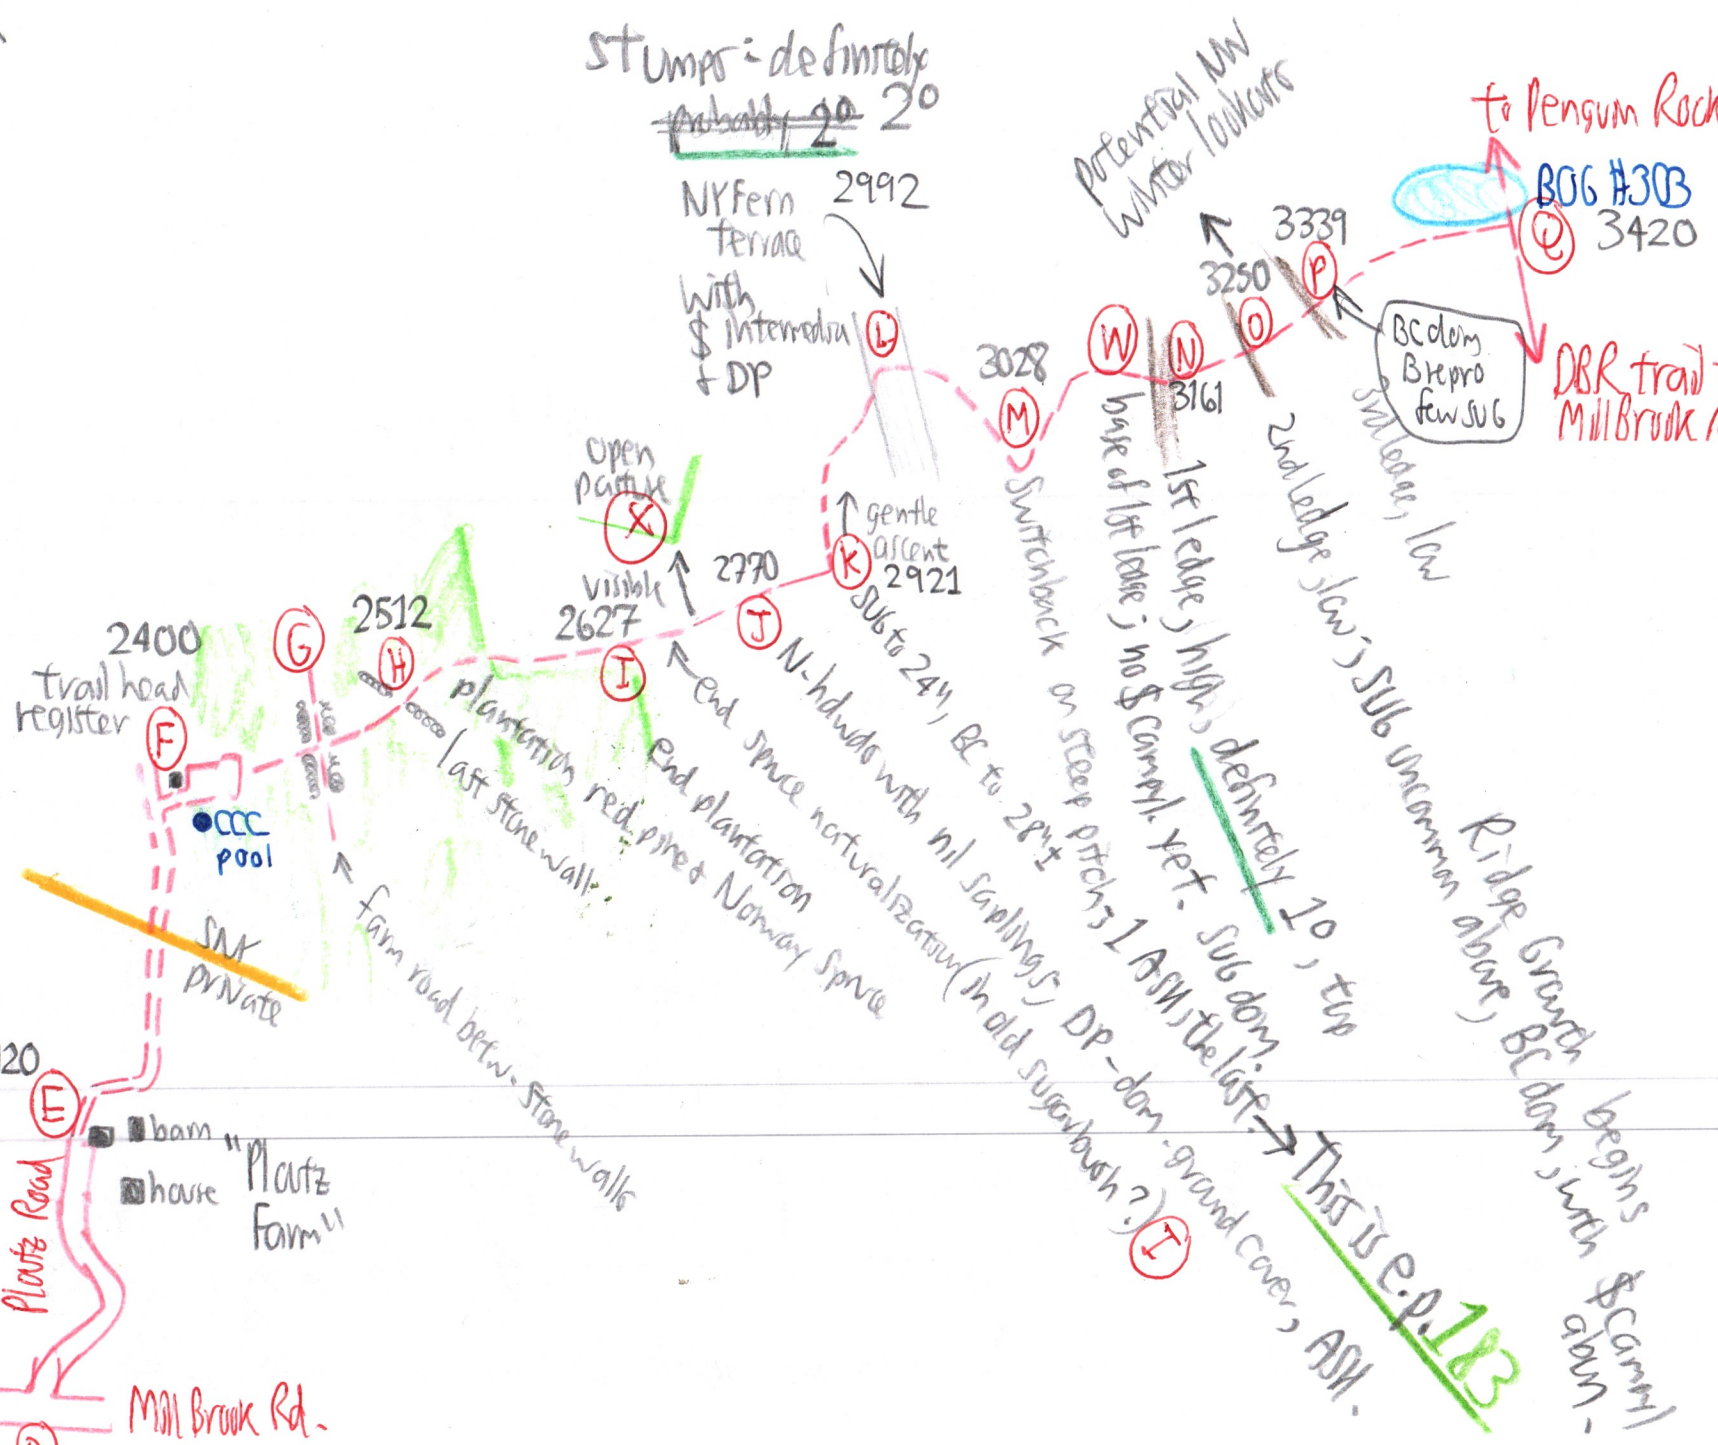 stumps: definitely
probably 2° 2°
NY Fern
terrace
with
$ intermedia
+ DP
2992
L
potential NW
winter lookouts
to Penguin Rock
BOG #303
Q
3420
DBR trail
Mill Brook
3339
P
BC dom
B repro
few SUG
3250
O
3028
M
W
N
3161
open
pasture
X
visible
gentle
ascent
K
2921
2770
J
2627
I
2512
H
G
2400
trail head
register
F
CCC
pool
SNK
private
20
E
barn
house
"Platz
Farm"
Platz Road
Mill Brook Rd.
farm road betw. stone walls
last stone wall
plantation red pine & Norway Spruce
end plantation
end spruce naturalization (in old sugarbush?)
I
N-hdwds with nil saplings, DP-dom. ground cover, ASH.
SUG to 24", BC to 28"±
Switchback on steep pitch; 1 ASH, the last.
This is e.p. 183
base of 1st ledge; no $ Campyl. yet. SUG dom.
1st ledge, high; definitely 1°, top
2nd ledge, low; SUG uncommon above, BC dom, with $ Campyl
abun.
Ridge Growth begins
3rd ledge, low